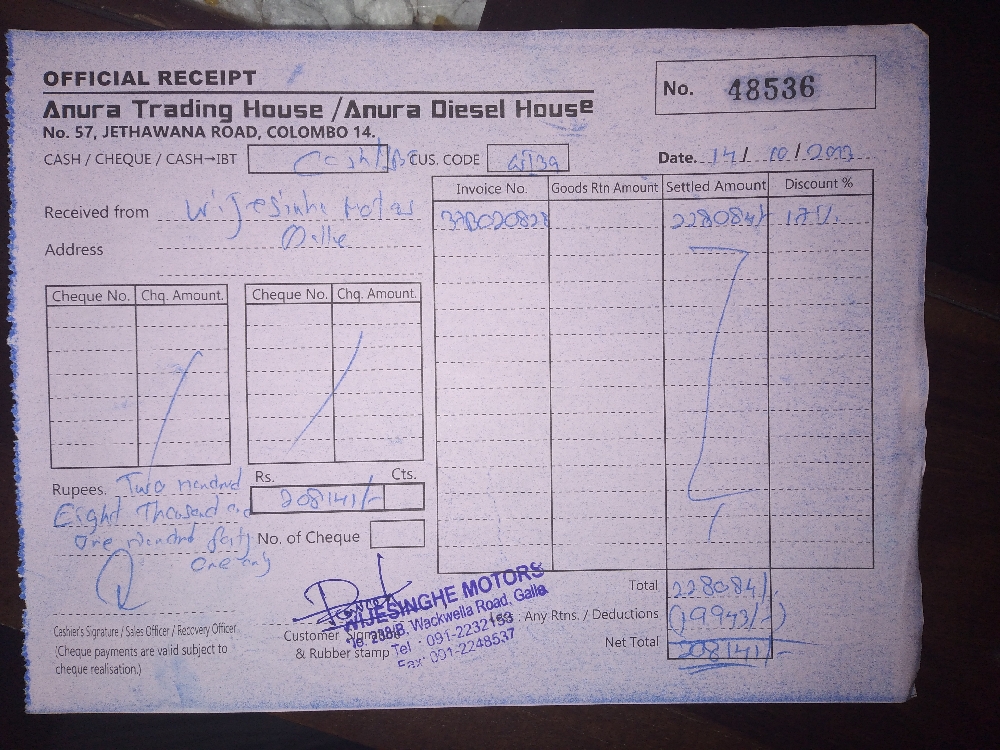 OFFICIAL RECEIPT
No. 48536
Anura Trading House / Anura Diesel House
No. 57, JETHAWANA ROAD, COLOMBO 14.
CASH / CHEQUE / CASH→IBT Cash / CUS. CODE
Date. 14 / 10 /
Received from Wijesinhe Motors
Address Galle
Invoice No. Goods Rtn Amount Settled Amount Discount %
228084/- 17%
Cheque No. Chq. Amount. Cheque No. Chq. Amount.
Rupees. Two Hundred
Eight Thousand and
One Hundred forty
One only
Rs. Cts.
208141/-
No. of Cheque
Total 228084/-
Less : Any Rtns. / Deductions (19943/-)
Net Total 208141/-
Cashier's Signature / Sales Officer / Recovery Officer
(Cheque payments are valid subject to
cheque realisation.)
Customer Signature
& Rubber stamp
WIJESINGHE MOTORS
No. 288/B, Wackwella Road, Galle
Tel : 091-2232153
Fax: 091-2248537